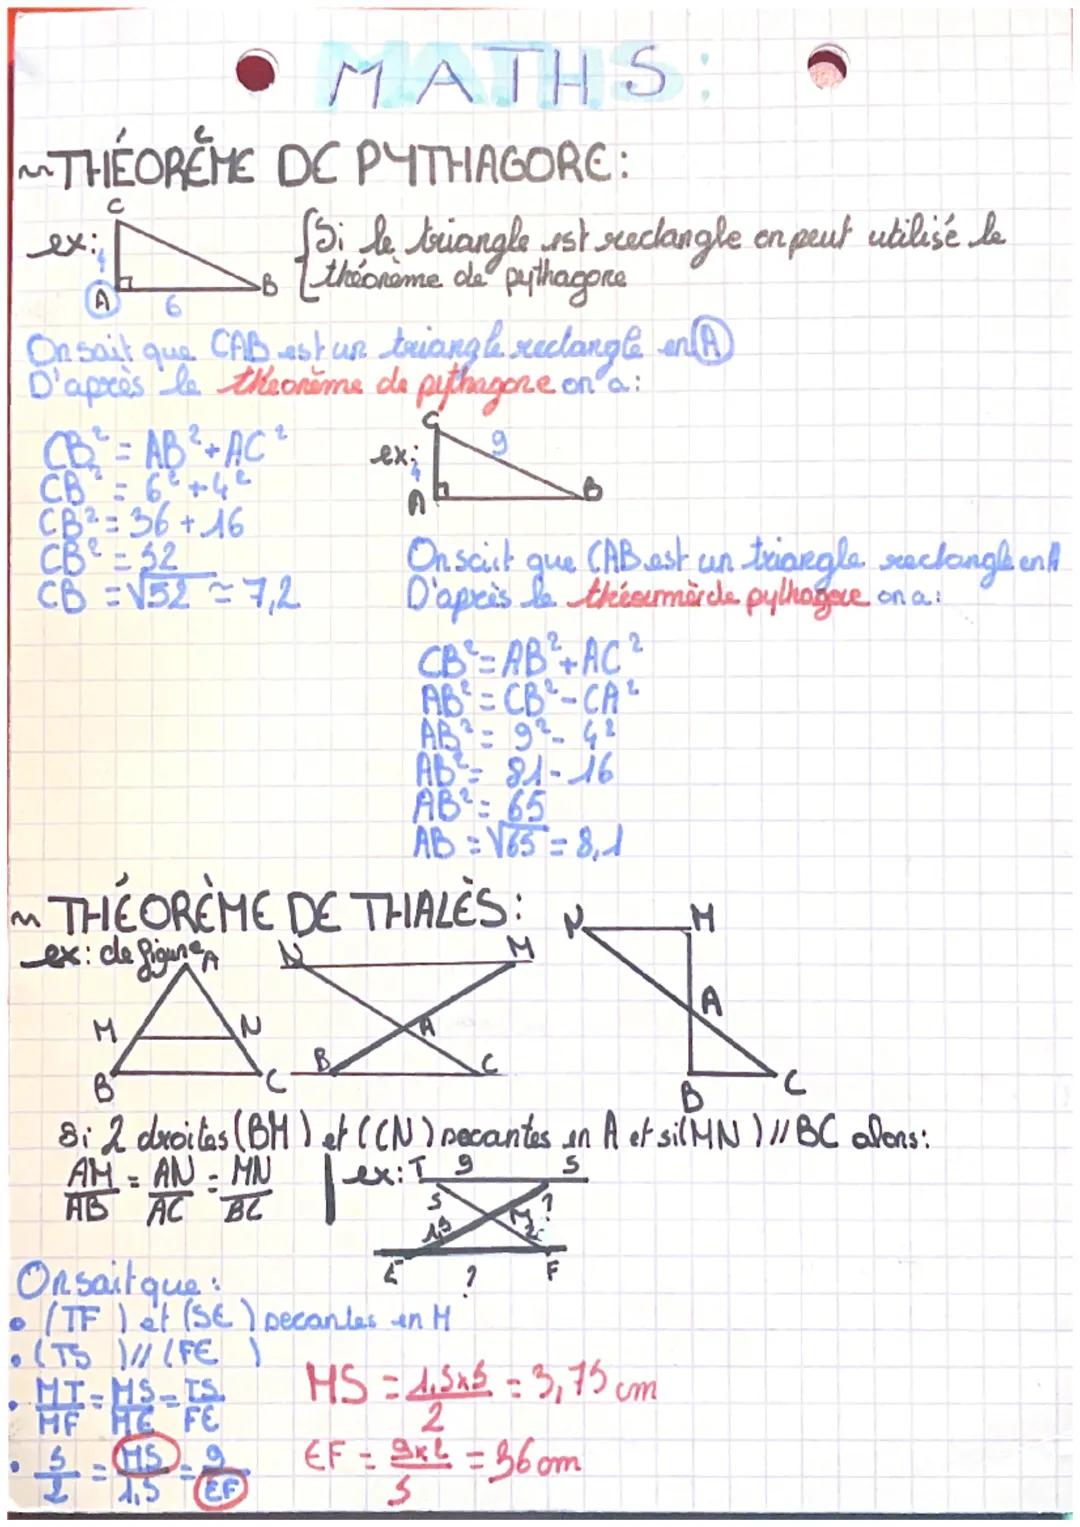 MATHS:
~THÉORÈME DE PYTHAGORE:
C
ex:
4
A
6
B
Si le triangle est rectangle on peut utilisé le
théorème de pythagore
On sait que CAB est un triangle rectangle en A
D'après le théorème de pythagore on a:
CB² = AB² + AC²
CB² = 6² + 4²
CB² = 36 + 16
CB² = 52
CB = √52 ≈ 7,2
ex:
C
9
4
A
B
On sait que CAB est un triangle rectangle en A
D'après le théormère de pythagore on a:
CB² = AB² + AC²
AB² = CB² - CA²
AB² = 9² - 4²
AB² = 81 - 16
AB² = 65
AB = √65 = 8,1
~ THÉORÈME DE THALÈS:
ex: de figure
A
M
N
B
C
N
M
A
B
C
N
M
A
B
C
Si 2 droites (BM) et (CN) secantes en A et si (MN) // BC alors:
AM/AB = AN/AC = MN/BC
ex:
T
9
S
5
?
1,5
M
2
E
?
F
On sait que:
• (TF) et (SE) secantes en M
• (TS) // (FE)
• MT/MF = MS/ME = TS/FE
• 5/2 = MS/1,5 = 9/EF
MS = 1,5x5/2 = 3,75 cm
EF = 9x2/5 = 36 cm